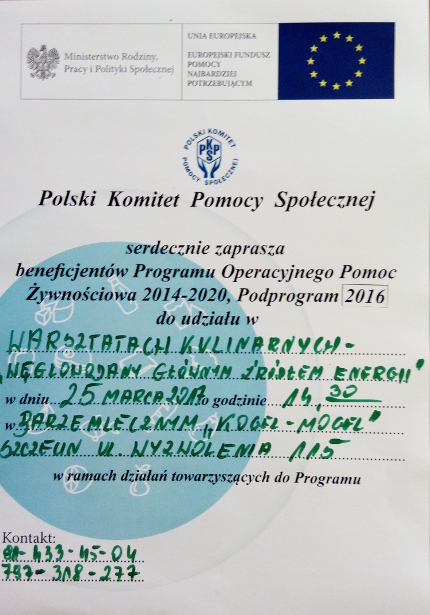 Ministerstwo Rodziny,
Pracy i Polityki Społecznej
UNIA EUROPEJSKA
EUROPEJSKI FUNDUSZ
POMOCY
NAJBARDZIEJ
POTRZEBUJĄCYM
POLSKI KOMITET
PKPS
POMOCY SPOŁECZNEJ
Polski Komitet Pomocy Społecznej
serdecznie zaprasza
beneficjentów Programu Operacyjnego Pomoc
Żywnościowa 2014-2020, Podprogram 2016
do udziału w
WARSZTATACH KULINARNYCH-
„WĘGLOWODANY GŁÓWNYM ŹRÓDŁEM ENERGII"
w dniu 25 MARCA 2017 o godzinie 14,30
w BARZE MLECZNYM „KOGEL-MOGEL"
SZCZECIN UL. WYZWOLENIA 115
w ramach działań towarzyszących do Programu
Kontakt:
91-433-45-04
797-318-277